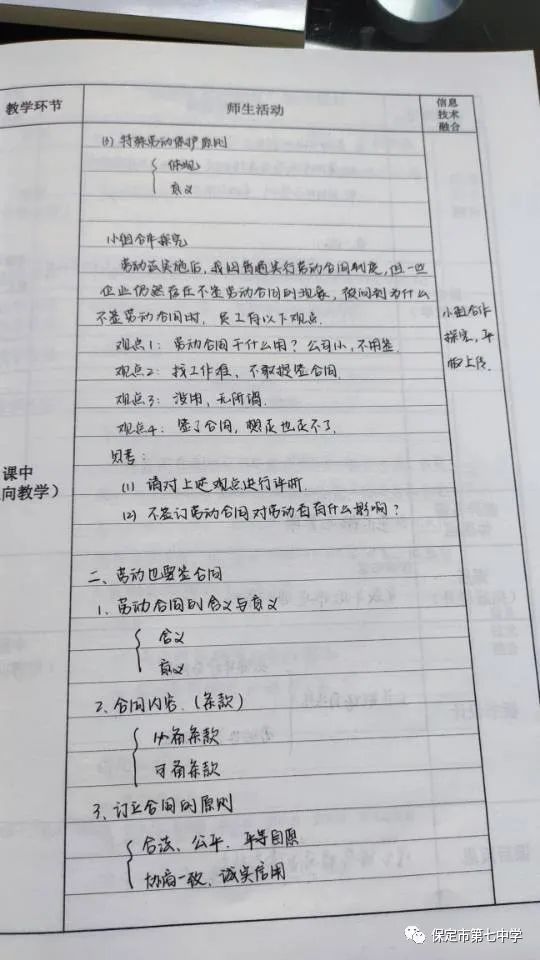 教学环节
师生活动
信息
技术
融合
(3) 特殊劳动保护原则
体现
意义
小组合作探究
劳动法实施后，我国普遍实行劳动合同制度，但一些
企业仍然存在不签劳动合同的现象，被问到为什么
不签劳动合同时，员工有以下观点.
观点1：劳动合同干什么用？公司小，不用签.
观点2：找工作难，不敢提签合同.
观点3：没用，无所谓.
观点4：签了合同，想走也走不了.
思考：
(1) 请对上述观点进行评析.
(2) 不签订劳动合同对劳动者有什么影响？
小组合作
探究，平
板上传.
课中
向教学）
二、劳动也要签合同
1、劳动合同的含义与意义
含义
意义
2、合同内容.（条款）
必备条款
可备条款
3、订立合同的原则
合法、公平、平等自愿
协商一致、诚实信用
保定市第七中学